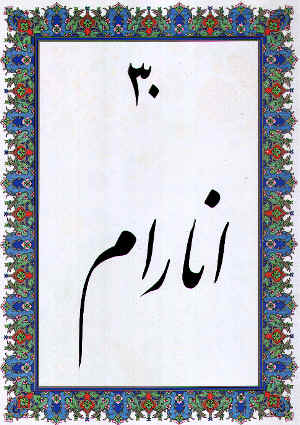 ۳۰
انارام